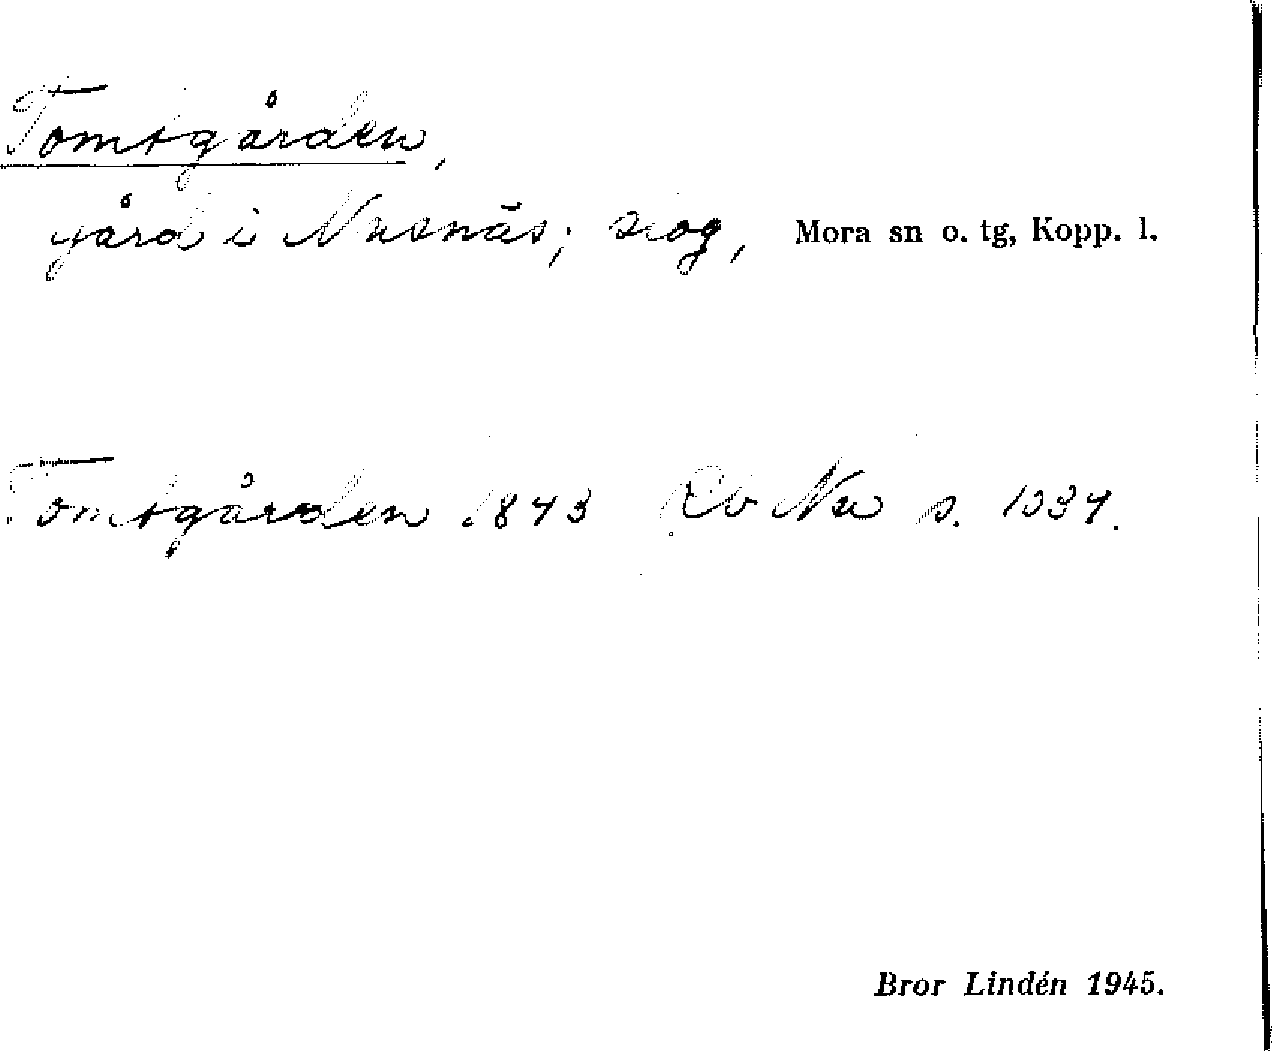 Tomtgården,
gård i Nusnäs; Mora sn o. tg, Kopp. l.
Tomtgården 1843 Rb Nu s. 1034.
Bror Lindén 1945.